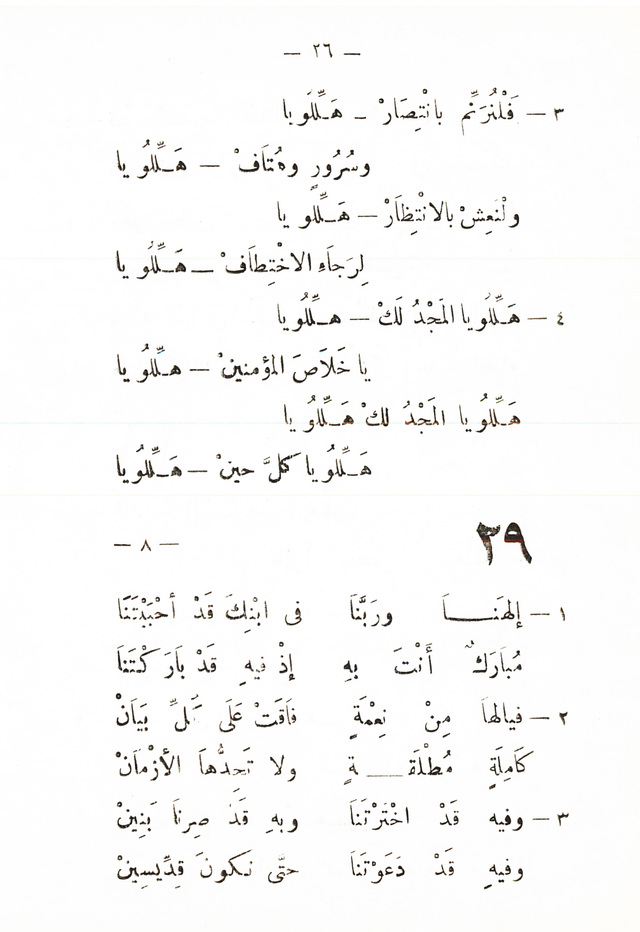 — ٢٦ —
٣ — فَلْنُرَنِّم بانْتِصَارْ — هَـلِّلُويا
وسُرُورٍ وهُتَافْ — هَـلِّلُويا
ولْنَعِشْ بالانْتِظَارْ — هَـلِّلُويا
لِرَجَاءِ الاخْتِطَافْ — هَـلِّلُويا
٤ — هَـلِّلُويا المَجْدُ لَكْ — هـلِّلُويا
يا خَلَاصَ المؤمنينْ — هـلِّلُويا
هَـلِّلُويا المَجْدُ لكْ هَـلِّلُويا
هَـلِّلُويا كلَّ حينْ — هَـلِّلُويا
٣٩
— ٨ —
١ — إلهَنـــا ورَبَّنَا فى ابْنِكَ قَدْ أحْبَبْتَنَا
مُبَارَكٌ أَنْتَ بهِ إذْ فيهِ قَدْ بَارَكْتَنَا
٢ — فيالهَا مِنْ نِعْمَةٍ فاقَتْ عَلَى كلِّ بَيَانْ
كَامِلَةٍ مُطْلَقَــةٍ ولا تَحِدُّهَا الأزْمَانْ
٣ — وفيه قَدْ اخْتَرْتَنَا وبهِ قَدْ صِرنَا بَنِينْ
وفيهِ قَدْ دَعَوْتَنَا حتَّى نكونَ قِدِّيسِينْ